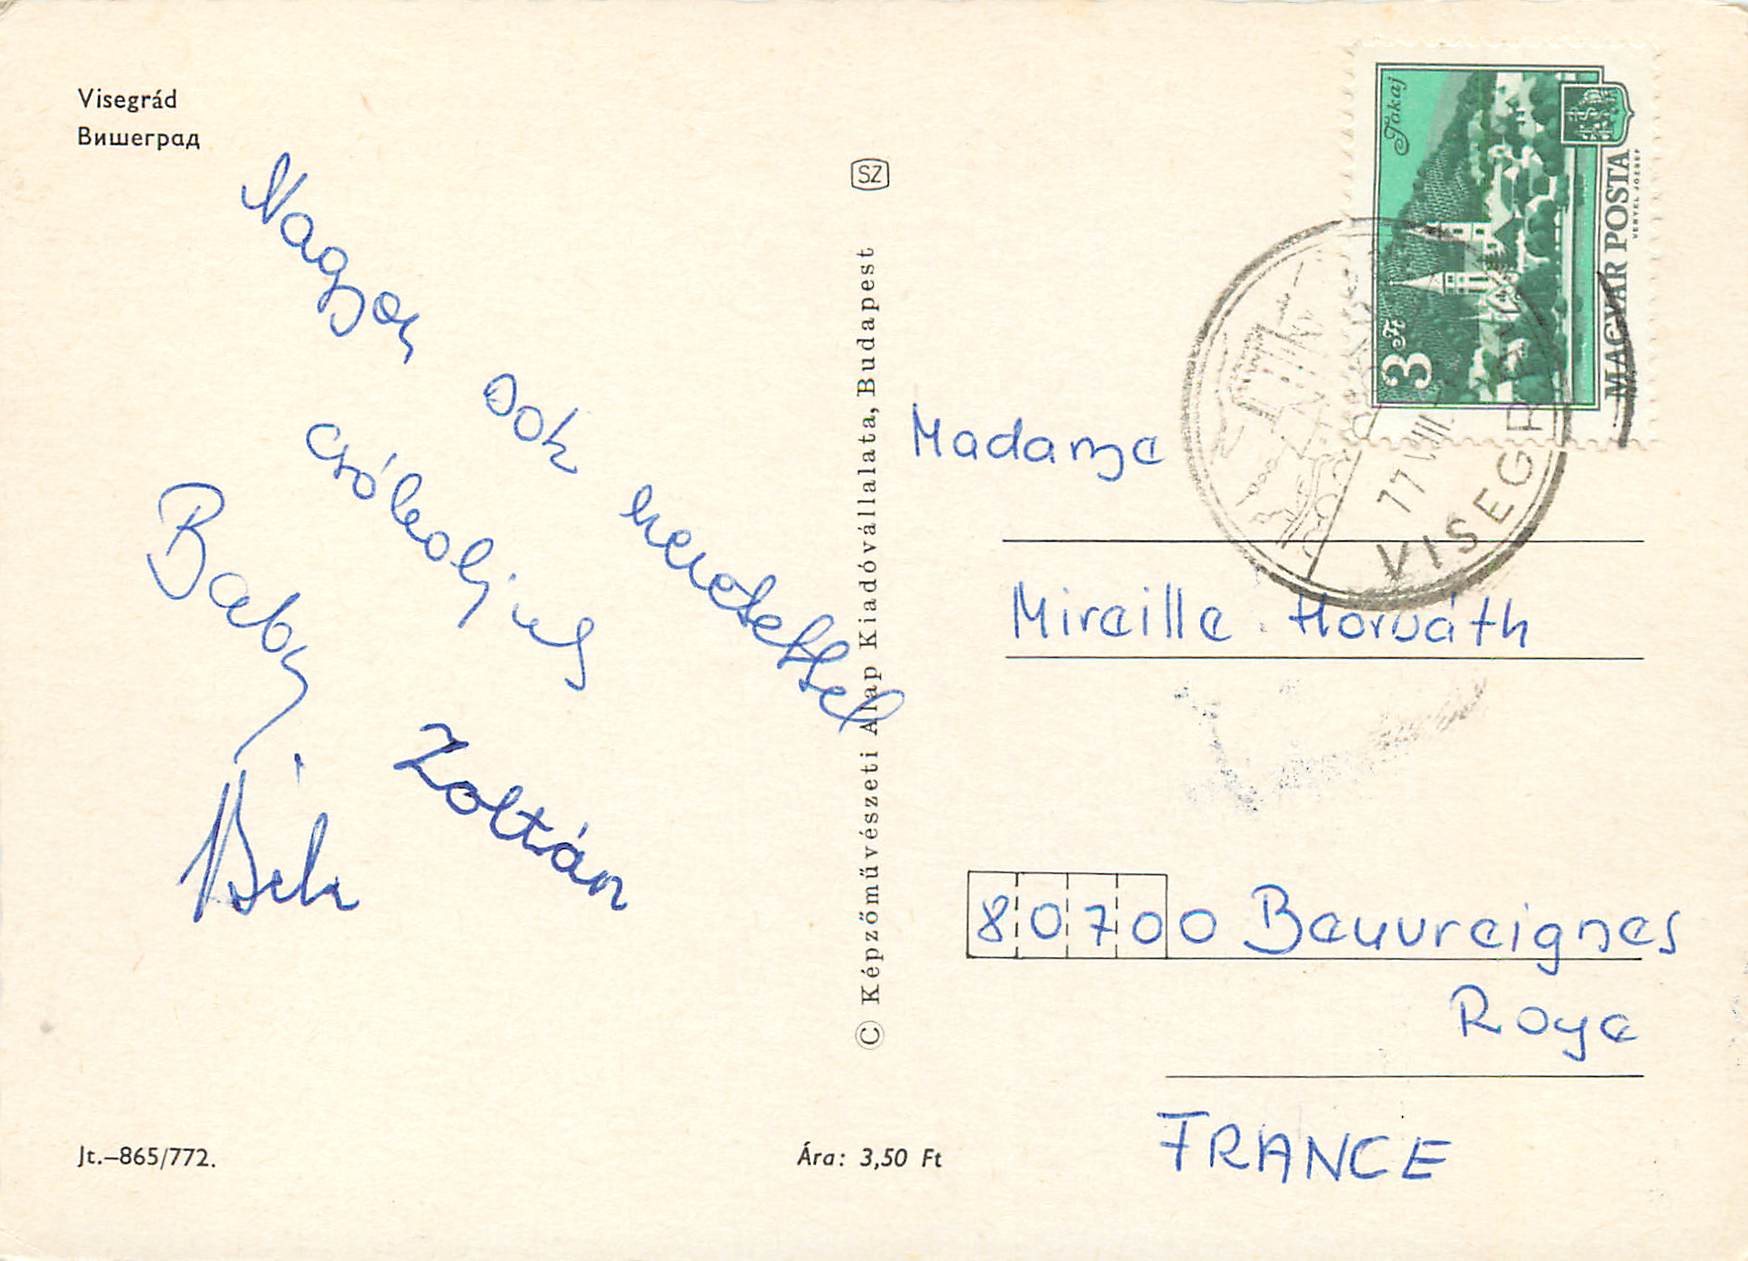 Visegrád
Вишеград
Nagyon sok szeretettel
csókoljuk
Baby
Zoltán
Béla
SZ
© Képzőművészeti Alap Kiadóvállalata, Budapest
Jt.—865/772.
Ára: 3,50 Ft
Tokaj
3 Ft
MAGYAR POSTA
VERTEL JÓZSEF
77 VIII
VISEGRÁD
Madame
Mireille Horváth
80700 Beuvreignes
Roye
FRANCE